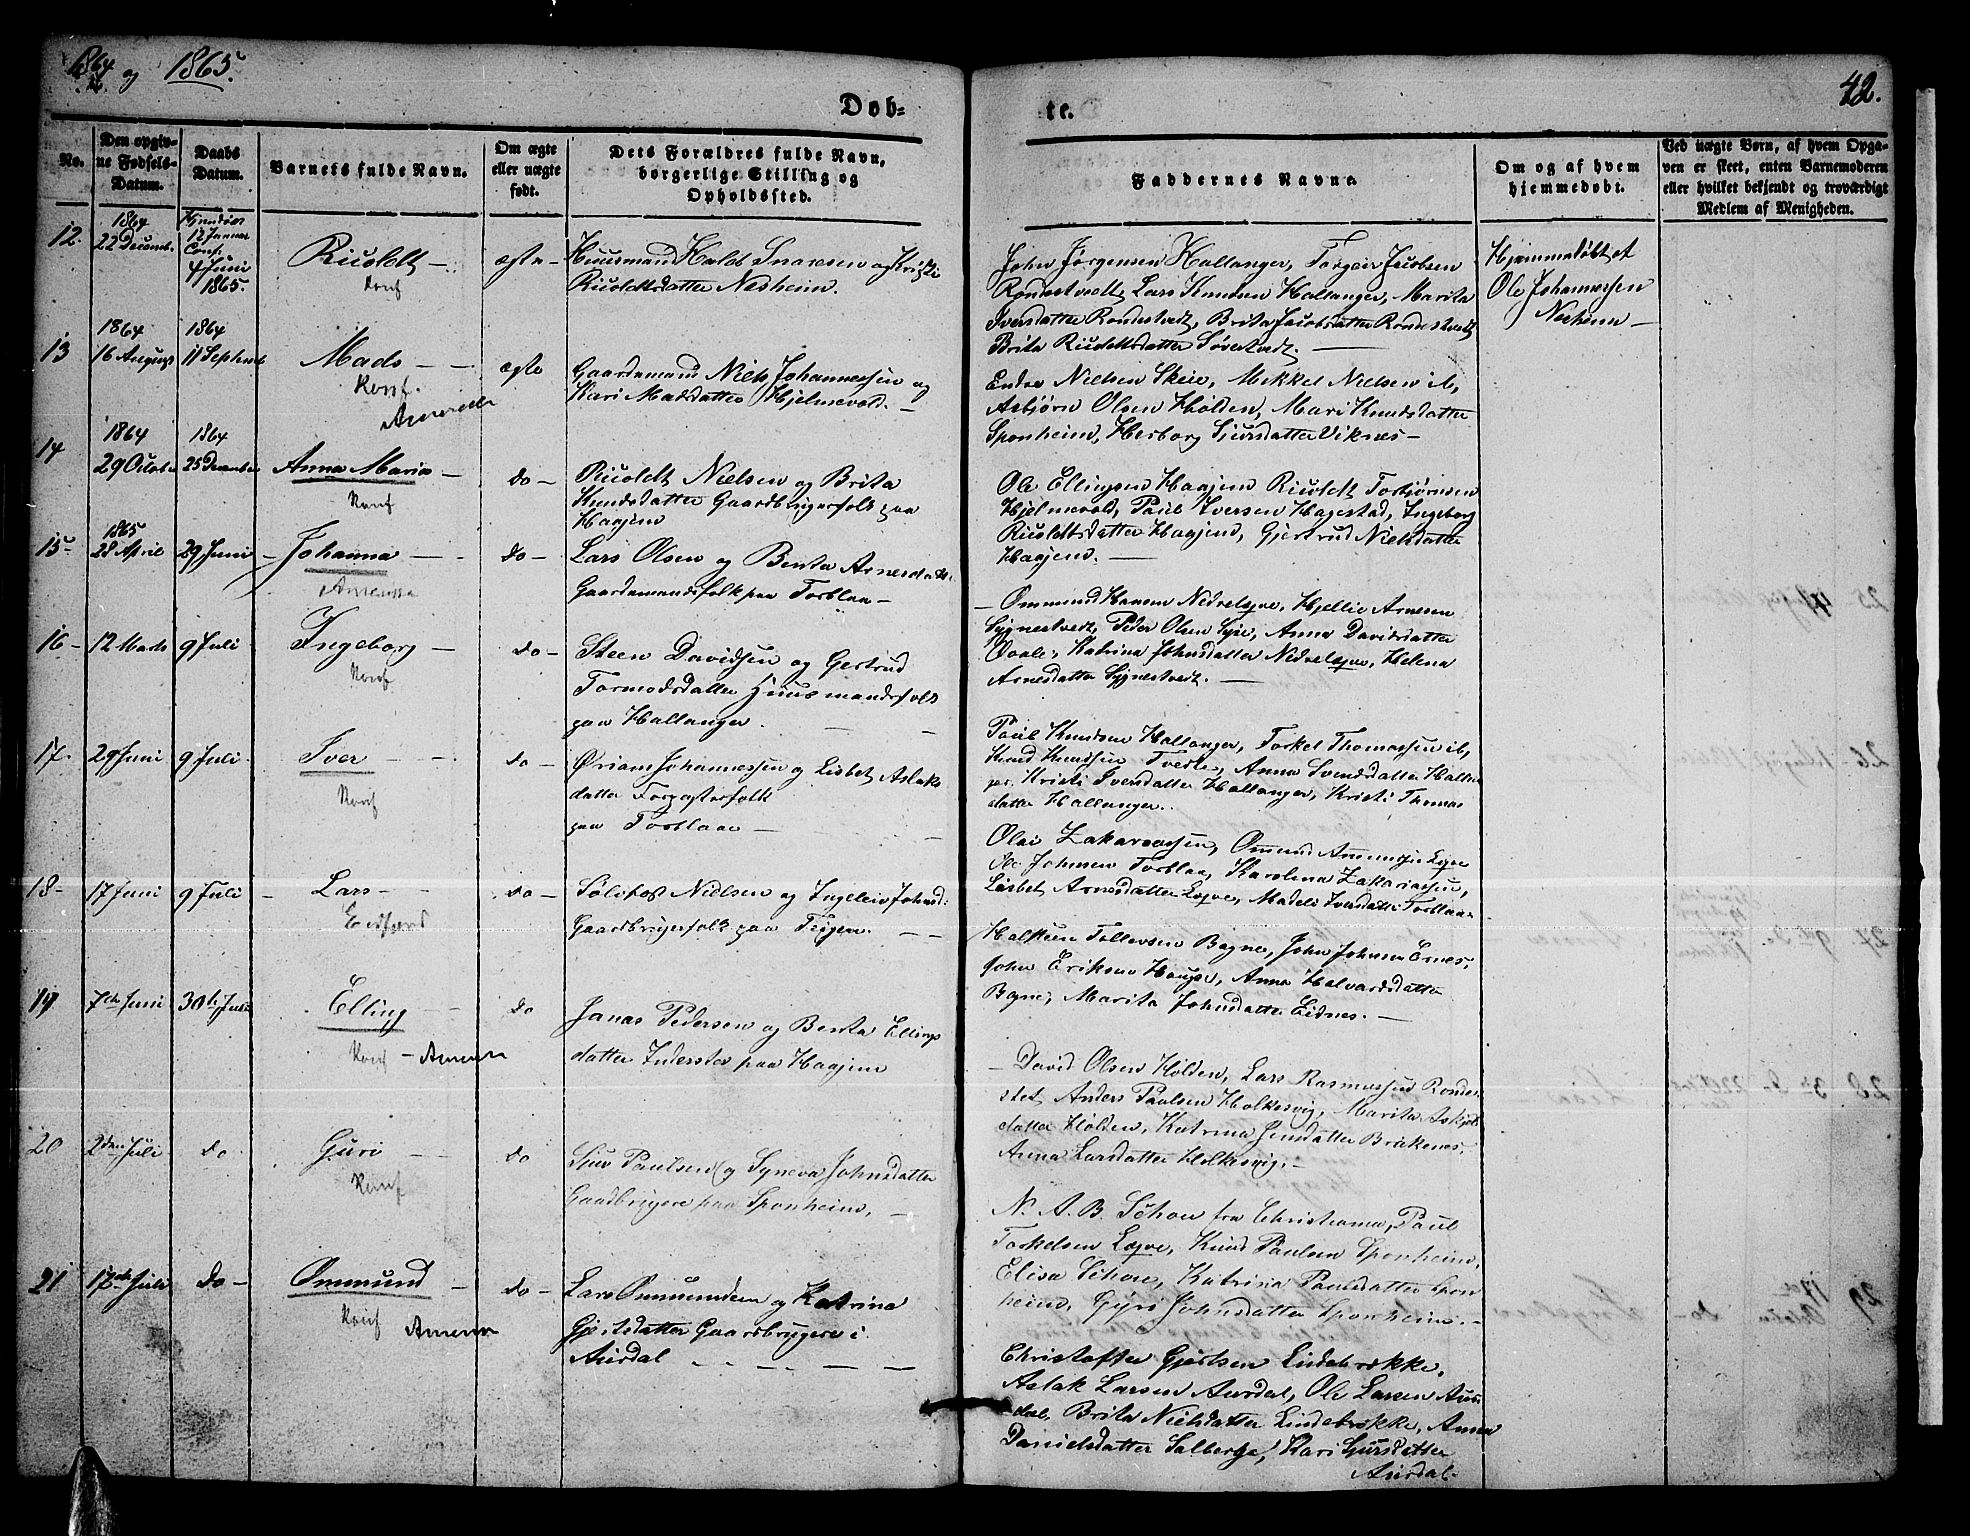 1864 og 1865.
42.
Døb-
te.
No.
Den opgiv-
ne Fødsels-
Datum.
Daabs
Datum.
Barnets fulde Navn.
Om ægte
eller uægte
født.
Dets Forældres fulde Navn,
borgerlige Stilling og
Opholdssted.
Faddernes Navne.
Om og af hvem
hjemmedøbt.
Ved uægte Børn, af hvem Opga-
ven er skeet, enten Barnemoderen
eller hvilket bekjendt og troværdigt
Medlem af Menigheden.
12.
1864
22 Decemb.
12 Januar
Conf.
4 Juni
1865.
Ricoldt
Konf
ægte
Huusmand Hald Snaresen og Kristi
Ricoldtsdatter Nesheim.
John Jørgensen Hallanger, Torgeir Jacobsen
Rondestvedt, Lars Knudsen Hallanger, Marita
Iversdatter Rondestvedt, Brita Jacobsdatter Rondestvedt
Brita Ricoldtsdatter Søvestvedt.
Hjemmedøbt af
Ole Johannessen
Nesheim
13
1864
16 August
1864
11 Septemb
Mads
Konf.
Amerika
ægte
Gaardamand Niels Johannessen og
Kari Madsdatter Hjelmevold.
Endre Nielsen Skeie, Mikkel Nielsen ib,
Asbjørn Olsen Holden, Mari Knudsdatter
Sponheim, Herborg Sjursdatter Viknes
14
1864
29 Octobe
1864
25 Decembe
Anna Maria
Konf
do
Ricoldt Nielsen og Brita
Knudsdatter Gaardbrugerfolk paa
Haajem
Ole Ellingsen Haajem Ricoldt Torbjørnsen
Hjelmevold, Paul Iversen Hagestad, Ingeborg
Ricoldtsdatter Haajem, Gjertrud Nielsdatter
Haajem.
15
1865
28 April
29 Juni
Johanna
Amerika
do
Lars Olsen og Benta Arnesdatt.
Gaardamandsfolk paa Torblaa
Ommund Hansen Nedrelæqve, Hjellie Arnesen
Sygnestvedt, Peder Olsen Syse, Anna Davidsdatter
Qvale, Katrina Johnsdatter Nedrelæqve, Helena
Arnesdatter Sygnestvedt.
16
12 Marts
9 Juli
Ingeborg
Konf
do
Steen Davidsen og Gertrud
Tormodsdatter Huusmandsfolk
paa Hallanger.
Paul Knudsen Hallanger, Torkel Thomassen ib,
Knud Knudsen Tveite, Anna Svendsdatter Hallan
ger. Kristi Iversdatter Hallanger, Kristi Thomas
datter Hallanger.
17.
29 Juni
9 Juli
Iver
Konf
do
Ørian Johannessen og Lisbet Aslaks
datter Forpagterfolk
paa Torblaa
Olai Zakariassen, Ommund Ommundsen Leqve
Johnsen Torblaa, Karolina Zakariassen,
Lisbet Arnesdatter Leqve, Madeli Iversdatter Torblaa
18
17 Juni
9 Juli
Lars
Eidfjord
do
Solifest Nielsen og Ingeleiv Johnsd.
Gaardbrugerfolk paa Teigen.
Halsten Tollevsen Bagne, John Johnsen Ernes,
John Eriksen Hauge, Anna Halvardsdatter
Bagne, Marita Johnsdatter Eidnes.
19
7de Juni
30te Juli
Elling
Konf - Amerika
do
Janas Pedersen og Benta Ellings
datter Inderster paa Haajem
David Olsen Holden, Lars Rasmussen Ronde
stet, Anders Paulsen Holkesvig, Marita Askjels
datter Holden, Katrina Jensdatter Brakenes,
Anna Larsdatter Holkesvig.
20
2den Juli
do
Guri
Konf
do
Sjur Paulsen og Syneva Johnsdatter
Gaardbrugere paa Sponheim,
N. A. B. Schou fra Christiania, Paul
Torkelsen Leqve, Knud Paulsen Sponheim,
Elisa Schou, Katrina Paulsdatter Spon
heim, Gyri Johnsdatter Sponheim.
21
17de Juli
do
Ommund
Konf
Amerika
do
Lars Ommundsen og Katrina
Gjertsdatter Gaardbrugere i
Aurdal
Christaffer Gjertsen Lindebrække,
Aslak Larsen Aurdal, Ole Larsen Aur
dal, Brita Nielsdatter Lindebrække, Anna
Danielsdatter Salberge, Kari Sjursdatter
Aurdal.